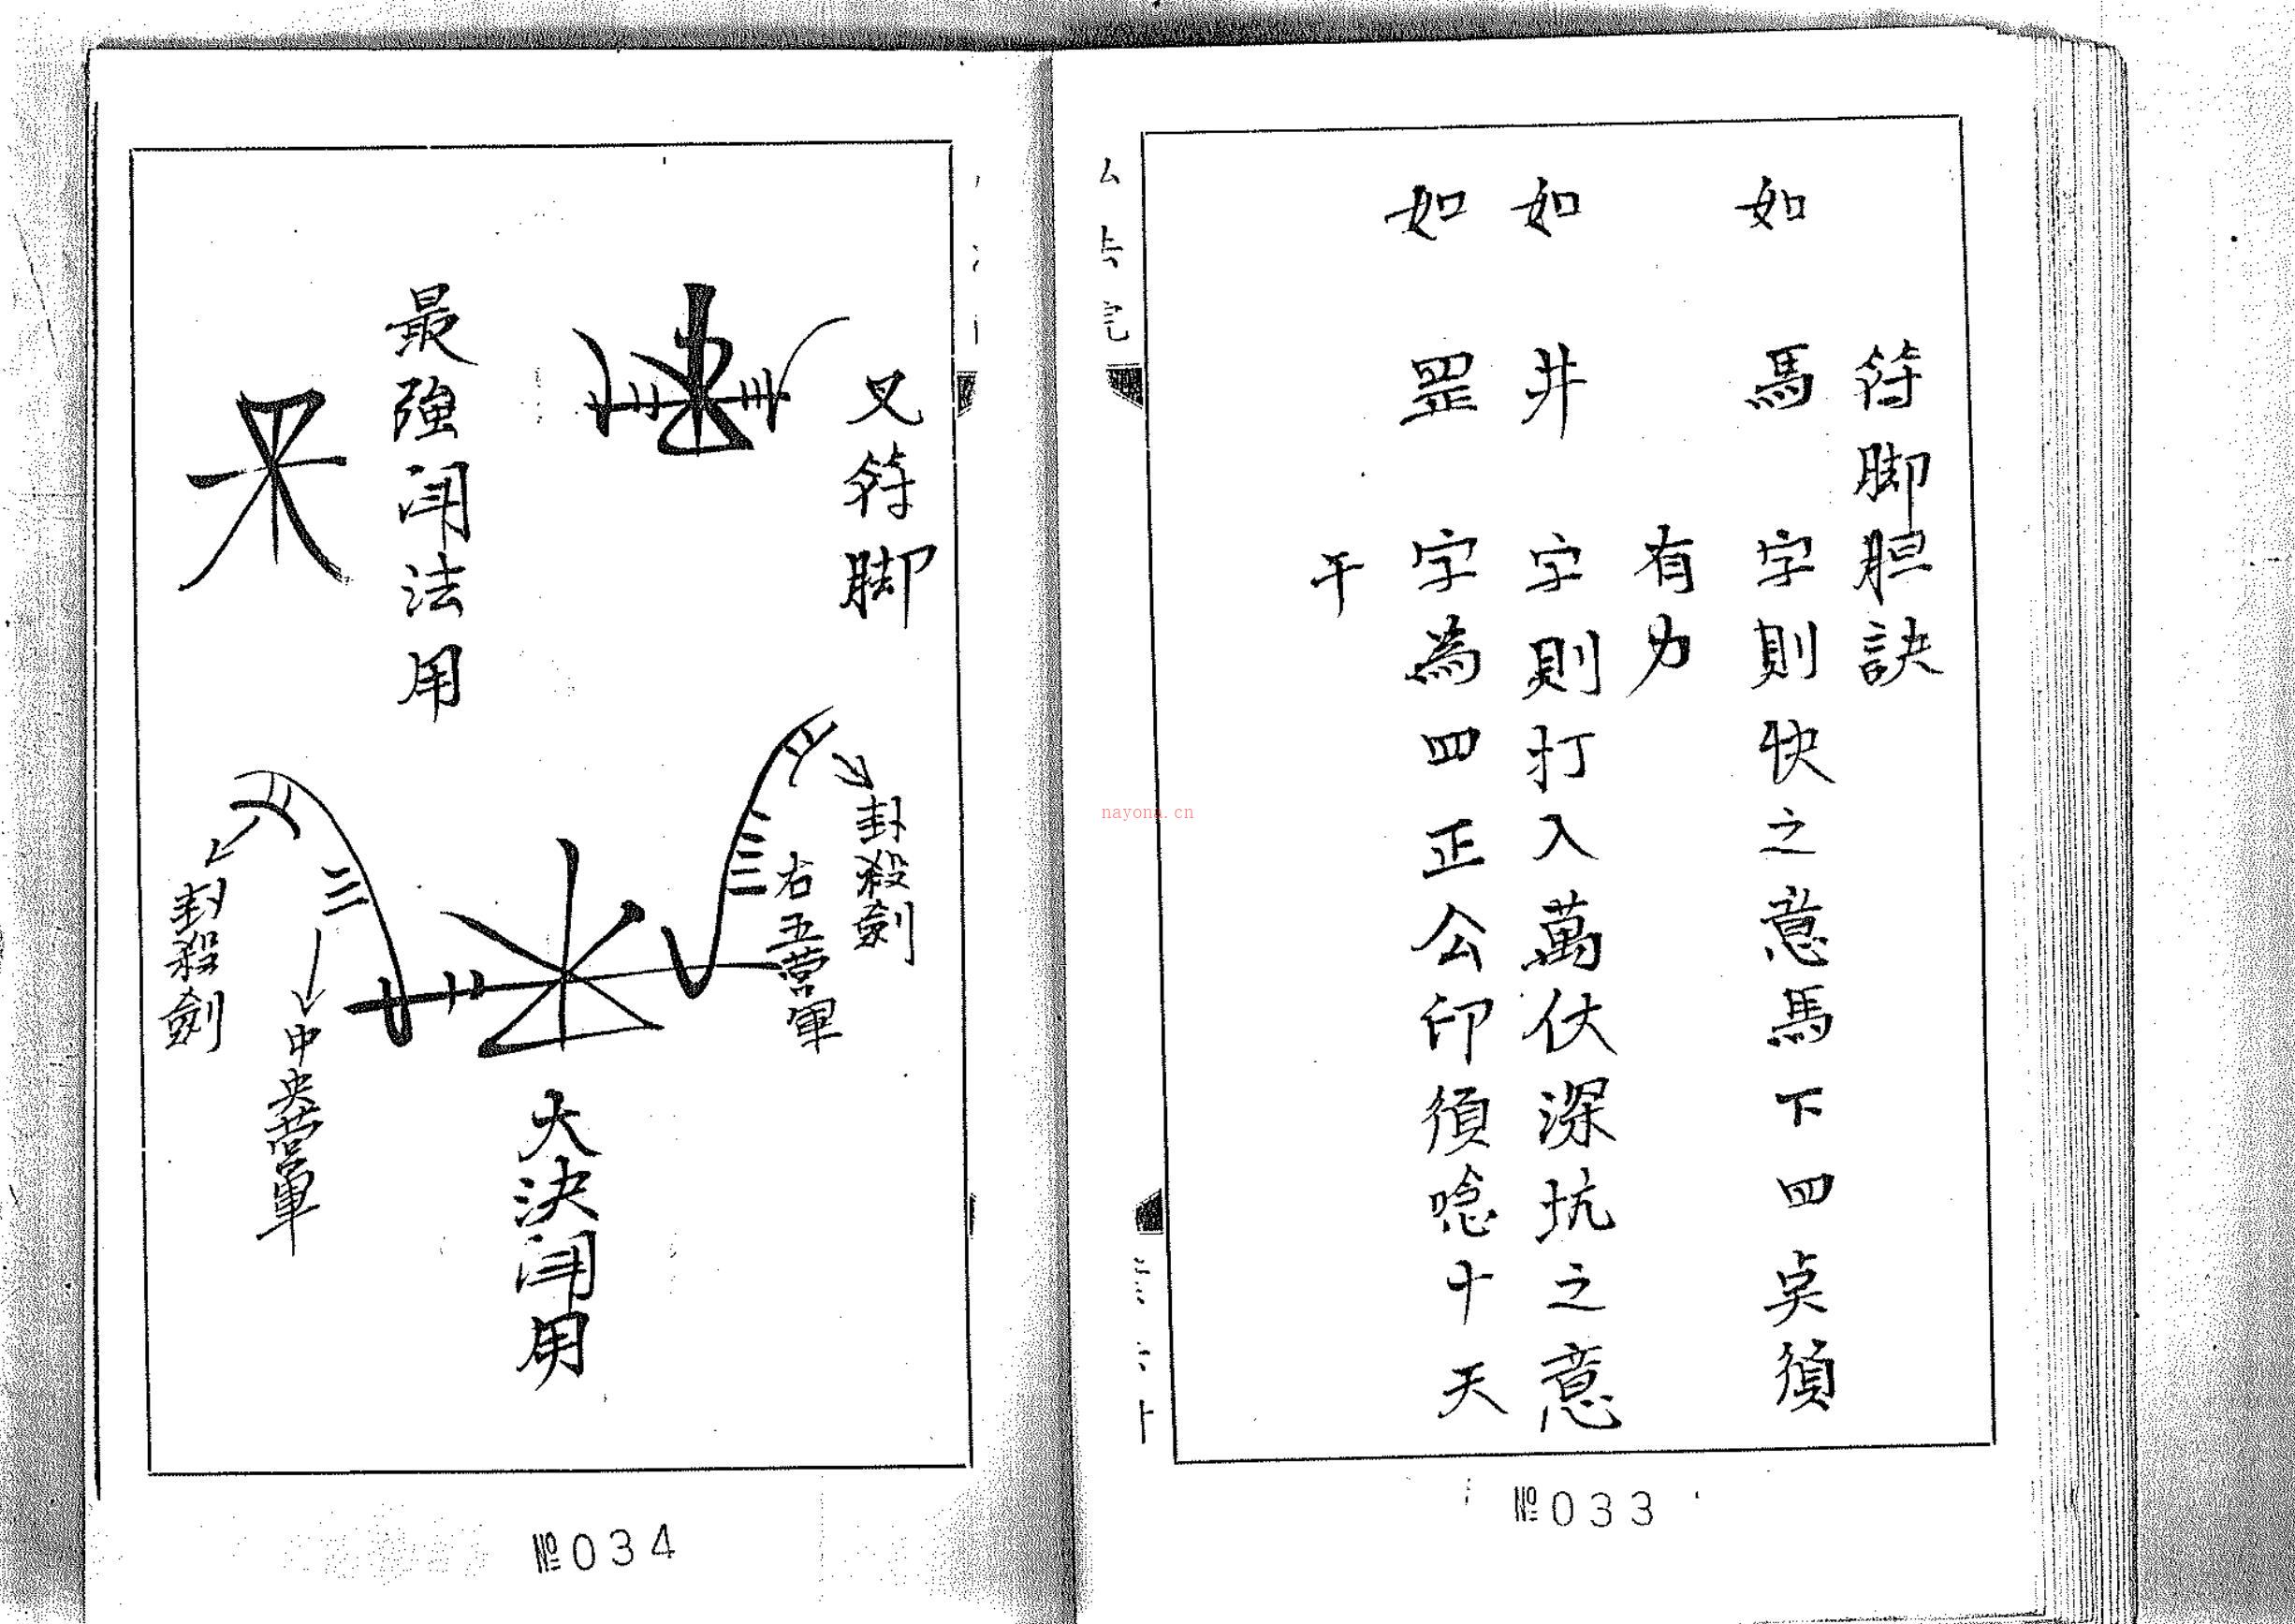 符脚胆訣
如馬字則快之意馬下四点須
有力
如井字則打入萬伏深坑之意
如罡字為四正公印須唸十天
干
№033
又符脚
最強闬法用
封殺劍
右五營軍
大決闬用
中央營軍
封殺劍
№034
nayona.cn